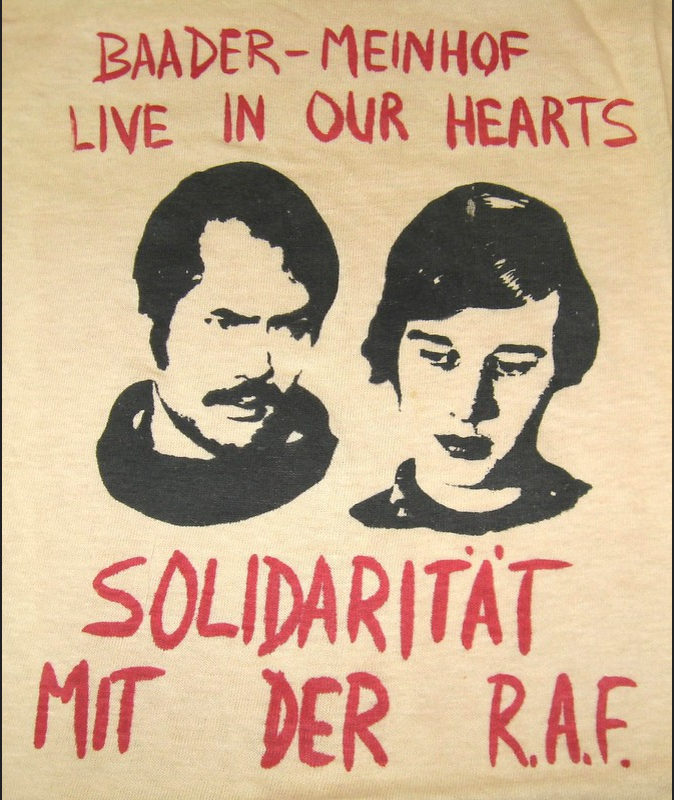 BAADER-MEINHOF
LIVE IN OUR HEARTS
SOLIDARITÄT
MIT DER R.A.F.